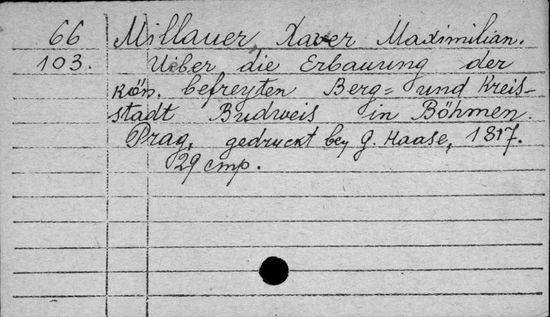 66 Millauer, Xaver Maximilian.
103. Ueber die Erbauung der
kön. befreyten Berg= und Kreis-
stadt Budweis in Böhmen.
Prag, gedruckt bey G. Haase, 1817.
29 cmp.